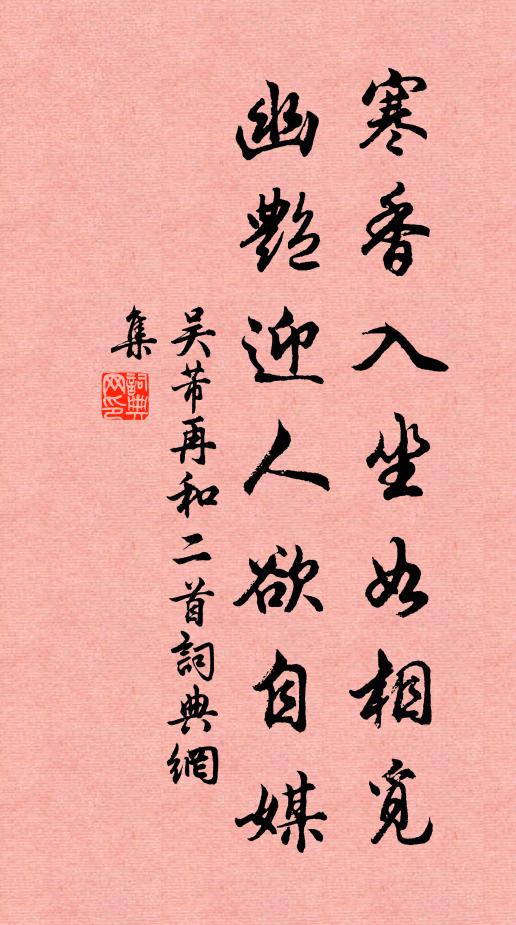 寒香入坐如相覓
幽艷迎人欲自媒
吳芾再和二首詞典網
集
詞典网印